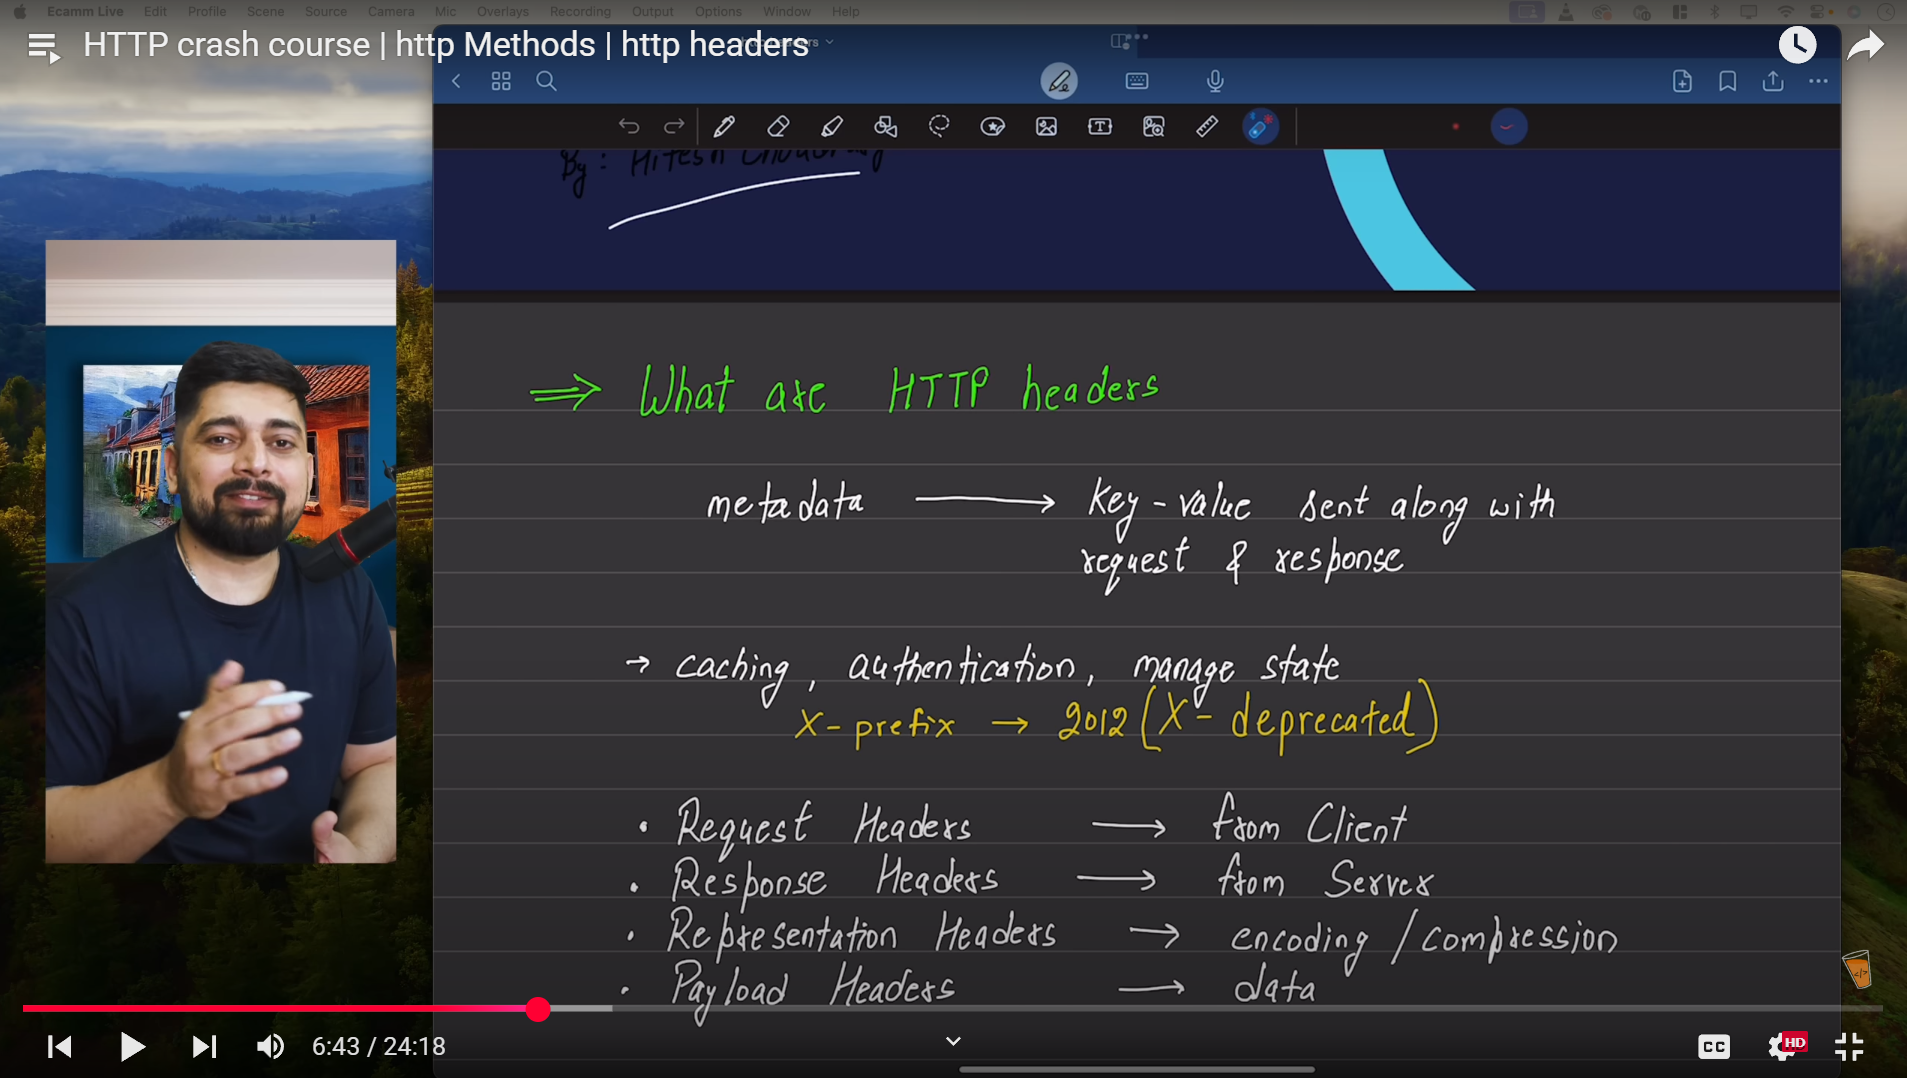 Ecamm Live Edit Profile Scene Source Camera Mic Overlays Recording Output Options Window Help
HTTP crash course | http Methods | http headers
By : Hitesh
⇒ What are HTTP headers
metadata → Key-value sent along with
request & response
→ caching, authentication, manage state
X-prefix → 2012 (X- deprecated)
• Request Headers → from Client
• Response Headers → from Server
• Representation Headers → encoding / compression
• Payload Headers → data
6:43 / 24:18
CC
HD